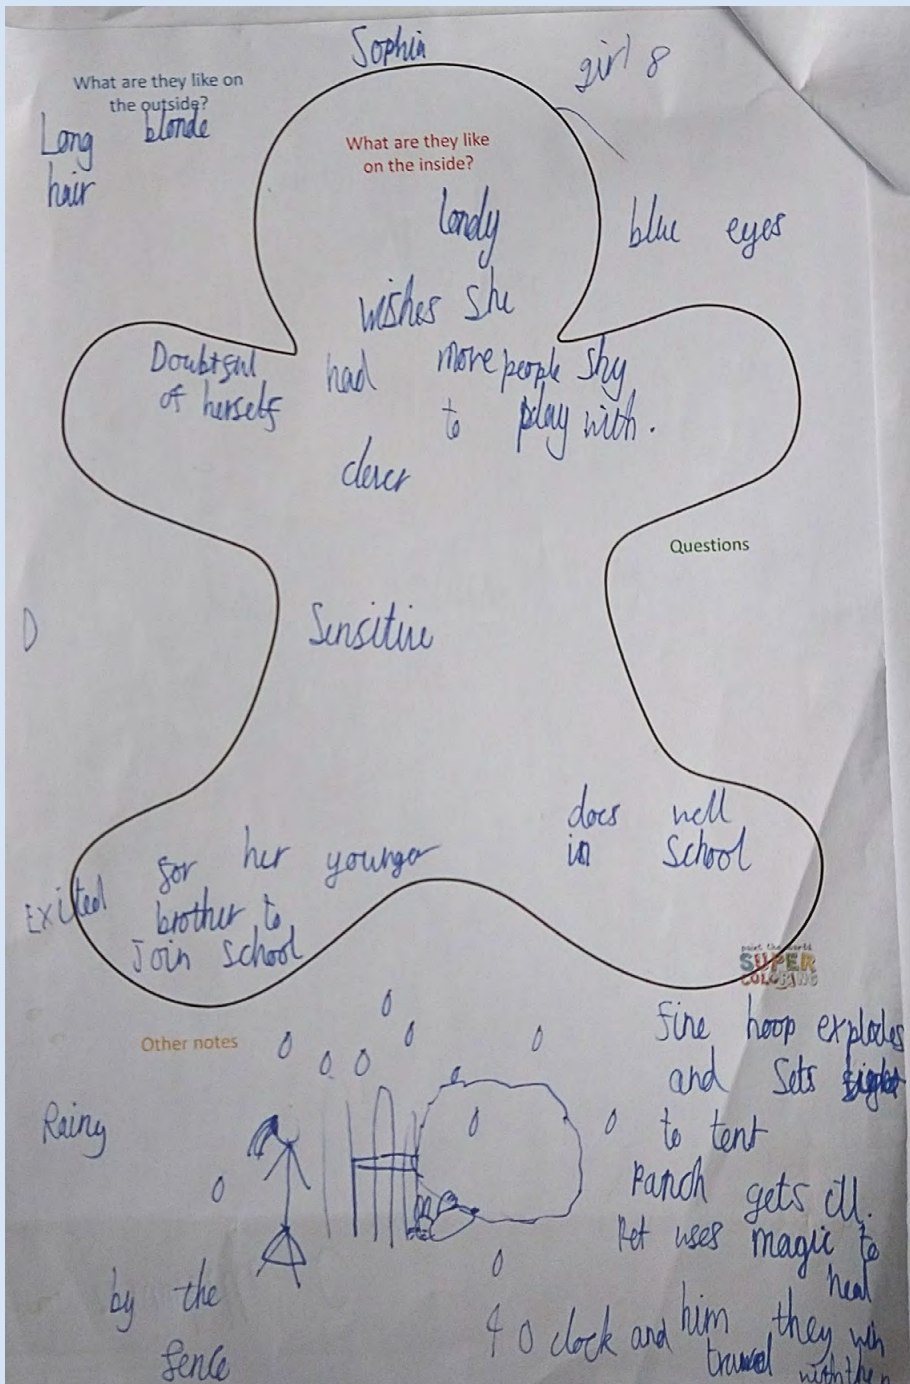 Sophia
girl 8
What are they like on
the outside?
Long blonde
hair
What are they like
on the inside?
lonely
blue eyes
wishes she
had more people
to play with.
shy
Doubtful
of herself
clever
Questions
D
Sensitive
does well
in School
Exited for her younger
brother to
Join School
paint the world
SUPER
COLORING
Other notes
Rainy
by the
fence
fire hoop explodes
and sets
to tent
Panch gets ill.
Pet uses magic to
heal
him they
4 O clock and